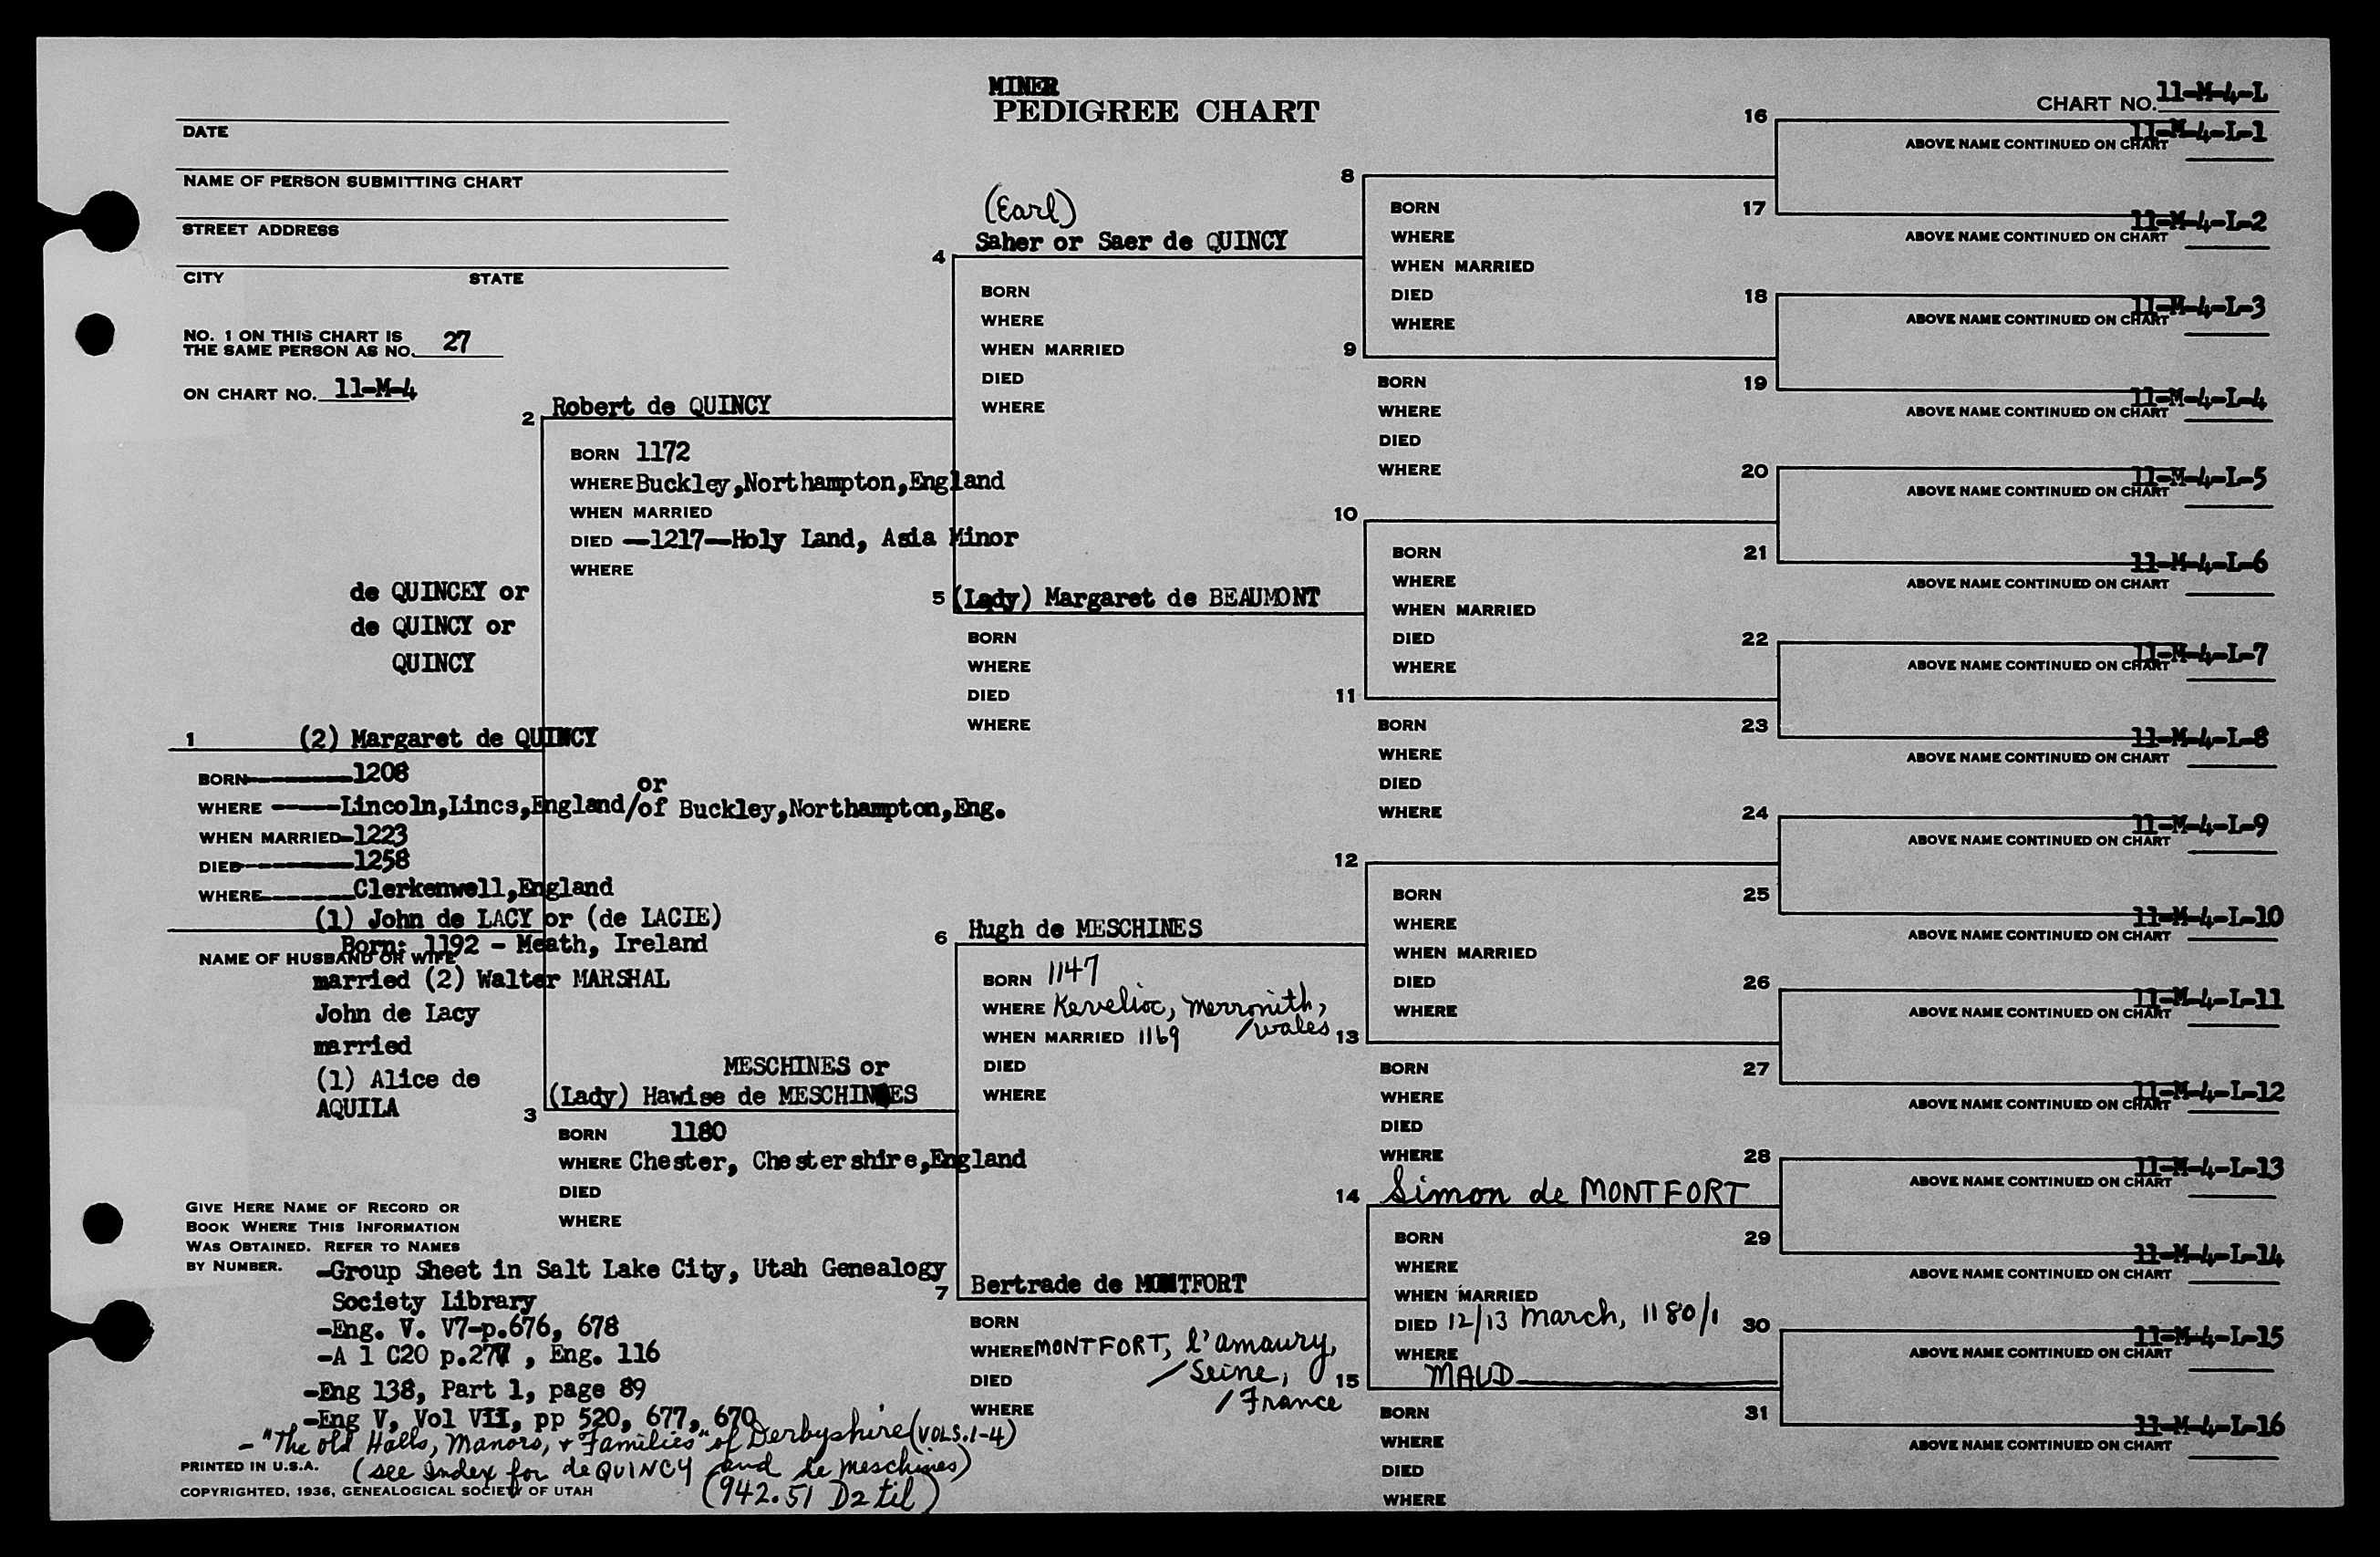 MINER
PEDIGREE CHART
CHART NO. 11-M-4-L
DATE
NAME OF PERSON SUBMITTING CHART
STREET ADDRESS
CITY STATE
NO. 1 ON THIS CHART IS
THE SAME PERSON AS NO. 27
ON CHART NO. 11-M-4
de QUINCEY or
de QUINCY or
QUINCY
1 (2) Margaret de QUINCY
BORN 1208
or
WHERE Lincoln,Lincs,England/of Buckley,Northampton,Eng.
WHEN MARRIED-1223
DIED 1258
WHERE Clerkenwell,England
(1) John de LACY or (de LACIE)
Born: 1192 - Meath, Ireland
NAME OF HUSBAND OR WIFE
married (2) Walter MARSHAL
John de Lacy
married
(1) Alice de
AQUILA
2 Robert de QUINCY
BORN 1172
WHERE Buckley,Northampton,England
WHEN MARRIED
DIED -1217-Holy Land, Asia Minor
WHERE
MESCHINES or
3 (Lady) Hawise de MESCHINES
BORN 1180
WHERE Chester, Chestershire,England
DIED
WHERE
(Earl)
4 Saher or Saer de QUINCY
BORN
WHERE
WHEN MARRIED
DIED
WHERE
5 (Lady) Margaret de BEAUMONT
BORN
WHERE
DIED
WHERE
6 Hugh de MESCHINES
BORN 1147
WHERE Kevelioc, Merronith,
/Wales
WHEN MARRIED 1169
DIED
WHERE
7 Bertrade de MONTFORT
BORN
WHERE MONTFORT, l'amaury,
/Seine,
/France
DIED
WHERE
8
BORN
WHERE
WHEN MARRIED
DIED
WHERE
9
BORN
WHERE
DIED
WHERE
10
BORN
WHERE
WHEN MARRIED
DIED
WHERE
11
BORN
WHERE
DIED
WHERE
12
BORN
WHERE
WHEN MARRIED
DIED
WHERE
13
BORN
WHERE
DIED
WHERE
14 Simon de MONTFORT
BORN
WHERE
WHEN MARRIED
DIED 12/13 March, 1180/1
WHERE
15 MAUD
BORN
WHERE
DIED
WHERE
16
ABOVE NAME CONTINUED ON CHART 11-M-4-L-1
17
ABOVE NAME CONTINUED ON CHART 11-M-4-L-2
18
ABOVE NAME CONTINUED ON CHART 11-M-4-L-3
19
ABOVE NAME CONTINUED ON CHART 11-M-4-L-4
20
ABOVE NAME CONTINUED ON CHART 11-M-4-L-5
21
ABOVE NAME CONTINUED ON CHART 11-M-4-L-6
22
ABOVE NAME CONTINUED ON CHART 11-M-4-L-7
23
ABOVE NAME CONTINUED ON CHART 11-M-4-L-8
24
ABOVE NAME CONTINUED ON CHART 11-M-4-L-9
25
ABOVE NAME CONTINUED ON CHART 11-M-4-L-10
26
ABOVE NAME CONTINUED ON CHART 11-M-4-L-11
27
ABOVE NAME CONTINUED ON CHART 11-M-4-L-12
28
ABOVE NAME CONTINUED ON CHART 11-M-4-L-13
29
ABOVE NAME CONTINUED ON CHART 11-M-4-L-14
30
ABOVE NAME CONTINUED ON CHART 11-M-4-L-15
31
ABOVE NAME CONTINUED ON CHART 11-M-4-L-16
GIVE HERE NAME OF RECORD OR
BOOK WHERE THIS INFORMATION
WAS OBTAINED. REFER TO NAMES
BY NUMBER. -Group Sheet in Salt Lake City, Utah Genealogy
Society Library
-Eng. V. V7-p.676, 678
-A 1 C20 p.277 , Eng. 116
-Eng 138, Part 1, page 89
-Eng V, Vol VII, pp 520, 677, 670
- "The old Halls, Manors, + Families" of Derbyshire (VOLS. 1-4)
(see index for de QUINCY and de Meschines)
(942.51 D2 til)
PRINTED IN U.S.A.
COPYRIGHTED, 1936, GENEALOGICAL SOCIETY OF UTAH